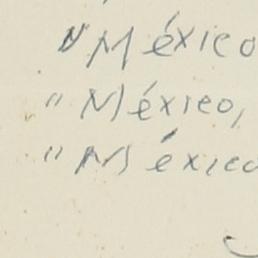 "México
"México,
"México